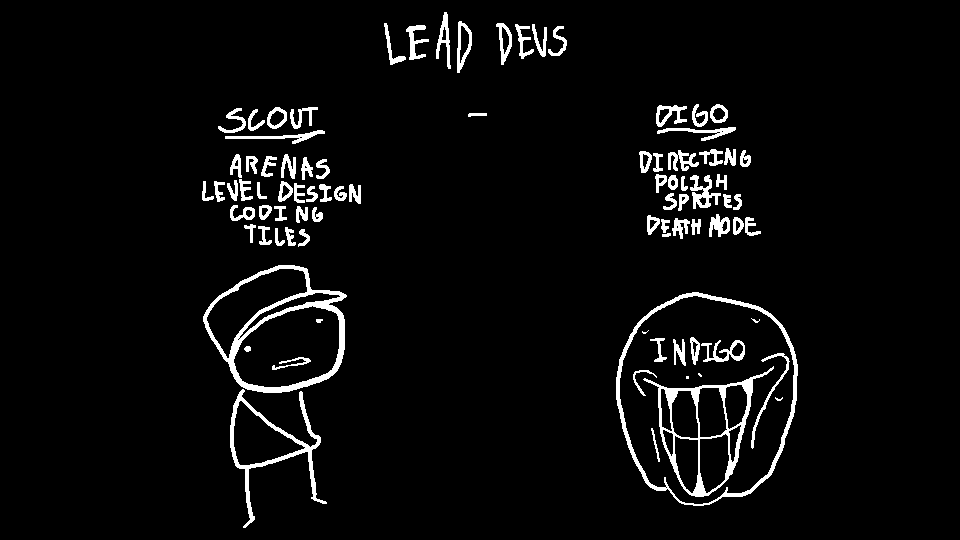 LEAD DEVS
SCOUT - DIGO
ARENAS
LEVEL DESIGN
CODING
TILES
DIRECTING
POLISH
SPRITES
DEATH MODE
INDIGO